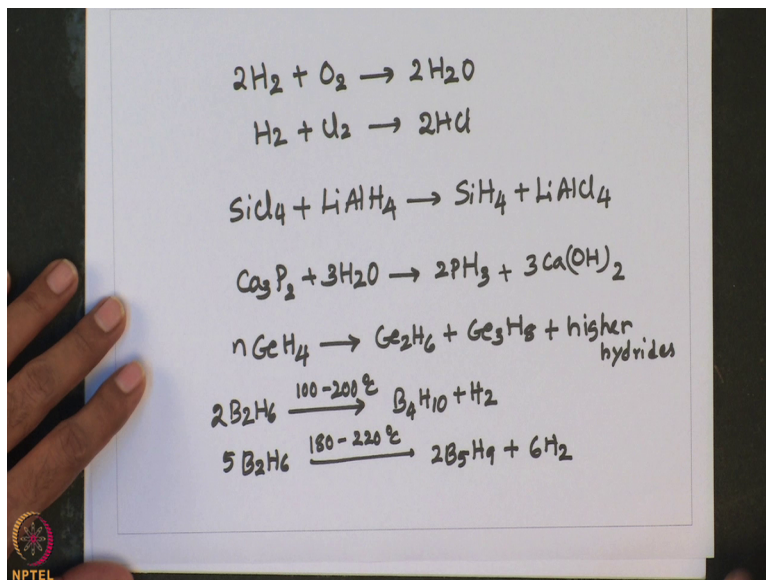 2H₂ + O₂ → 2H₂O
H₂ + Cl₂ → 2HCl
SiCl₄ + LiAlH₄ → SiH₄ + LiAlCl₄
Ca₃P₂ + 3H₂O → 2PH₃ + 3Ca(OH)₂
nGeH₄ → Ge₂H₆ + Ge₃H₈ + higher
hydrides
2B₂H₆ 100-200℃ → B₄H₁₀ + H₂
5B₂H₆ 180-220℃ → 2B₅H₉ + 6H₂
NPTEL